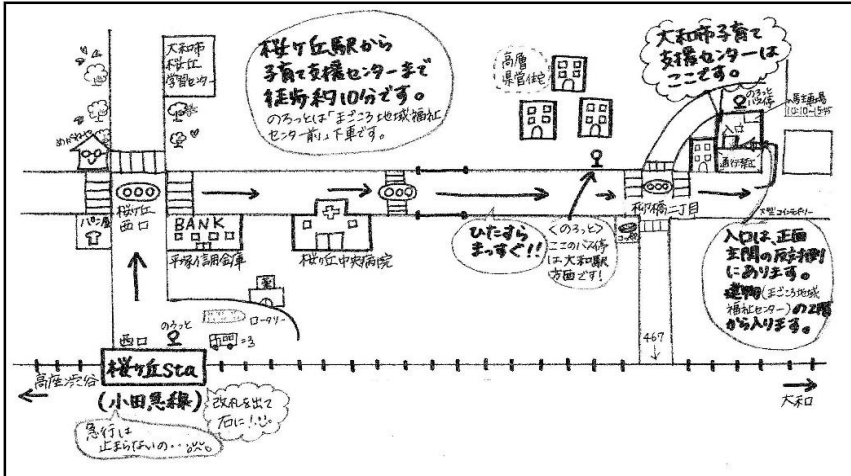 大和市
桜丘
学習センター
桜ヶ丘駅から
子育て支援センターまで
徒歩約10分です。
のろっとは「まごころ地域福祉
センター前」下車です。
高層
県営住宅
大和市子育て
支援センターは
ここです。
のろっと
バス停
入口
通行禁止
めがねや
桜ヶ丘
西口
パン屋
BANK
平塚信用金庫
桜ヶ丘中央病院
ひたすら
まっすぐ!!
<のろっと>
ここのバス停
は、大和駅
方面です!
柳橋二丁目
入口は、正面
玄関の反対側
にあります。
建物(まごころ地域
福祉センター)の2階
から入ります。
467
西口
のろっと
ロータリー
桜ヶ丘Sta
(小田急線)
改札を出て
右に!
急行は
止まらないの・・
高座渋谷
大和